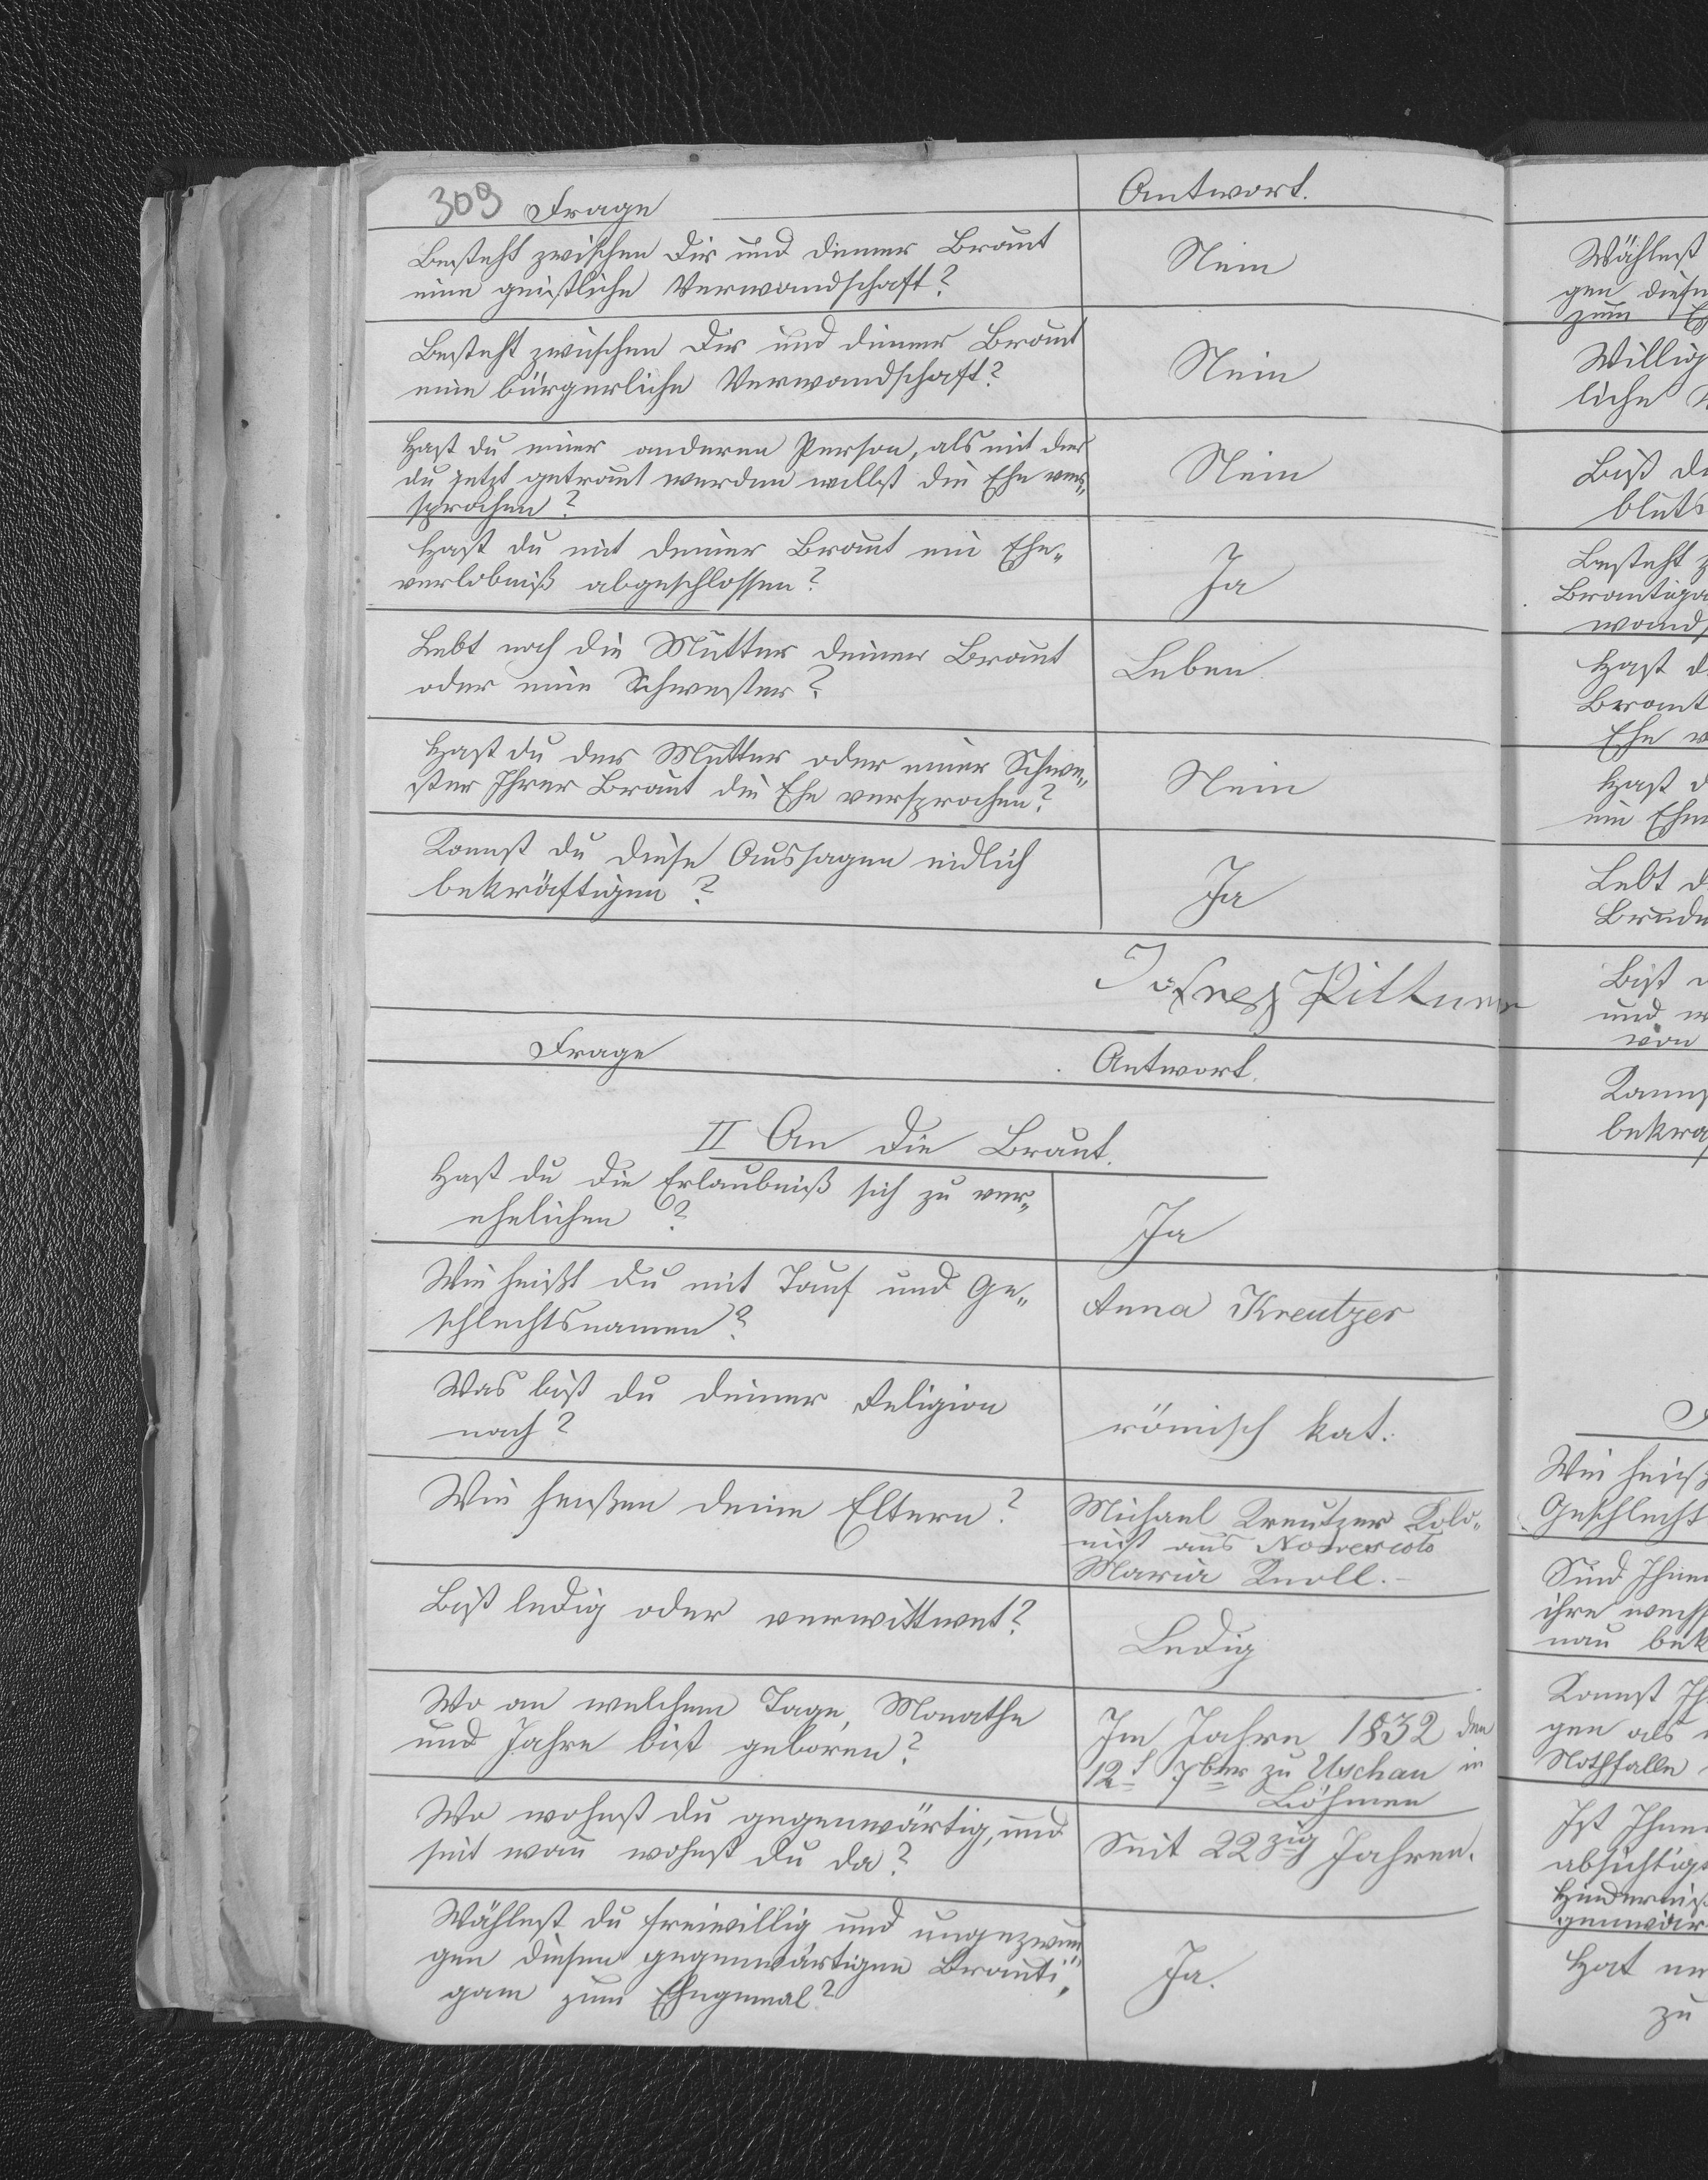 309 Frage Antwort.
Besteht zwischen Dir und deiner Braut
eine geistliche Verwandschaft?
Nein
Besteht zwischen Dir und deiner Braut
eine bürgerliche Verwandschaft?
Nein
Hast du einer anderen Person, als mit der
du jetzt getraut werden willst die Ehe ver„
sprochen?
Nein
Hast du mit deiner Braut ein Ehe„
verlobniß abgeschlossen?
Ja
Lebt noch die Mutter deiner Braut
oder eine Schwester?
Leben.
Hast du der Mutter oder einer Schwe„
ster Ihrer Braut die Ehe versprochen?
Nein
Kannst du diese Aussagen eidlich
bekräftigen?
Ja
Pittner
Frage Antwort.
II An die Braut.
Hast du die Erlaubniß sich zu ver„
ehelichen?
Ja
Wie heißt du mit Tauf und Ge„
schlechtsnamen?
Anna Kreutzer
Was bist du deiner Religion
nach?
römisch kat.
Wie heißen deine Eltern?
Michael Kreutzer Kolo„
nist aus
Maria Knoll.
Bist ledig oder verwittwet?
Ledig
Wo an welchem Tage, Monathe
und Jahre bist geboren?
Im Jahre 1832 den
12t 7ber zu Uschau in
Böhmen
Wo wohnst du gegenwärtig, und
seit wan wohnst du da?
Seit 22zig Jahren.
Wählest du freiwillig und ungezwun„
gen diesen gegenwärtigen Bräuti„
gam zum Ehegemal?
Ja.
Wählest
gen diesen
zum
Willig
liche
Bist du
bluts
Besteht
Brautiga
wand
Hast d
Braut
Ehe v
Hast d
ein Ehe
Lebt d
Brude
Bist
und
von
Kannst
bekra
Wie heiß
Geschlecht
Sind Ihnen
ihre
nau bek
Kannst Ih
gen als
Nothfalle
Ist Ihne
absichtig
Hinderniß
genwär
Hat
zu